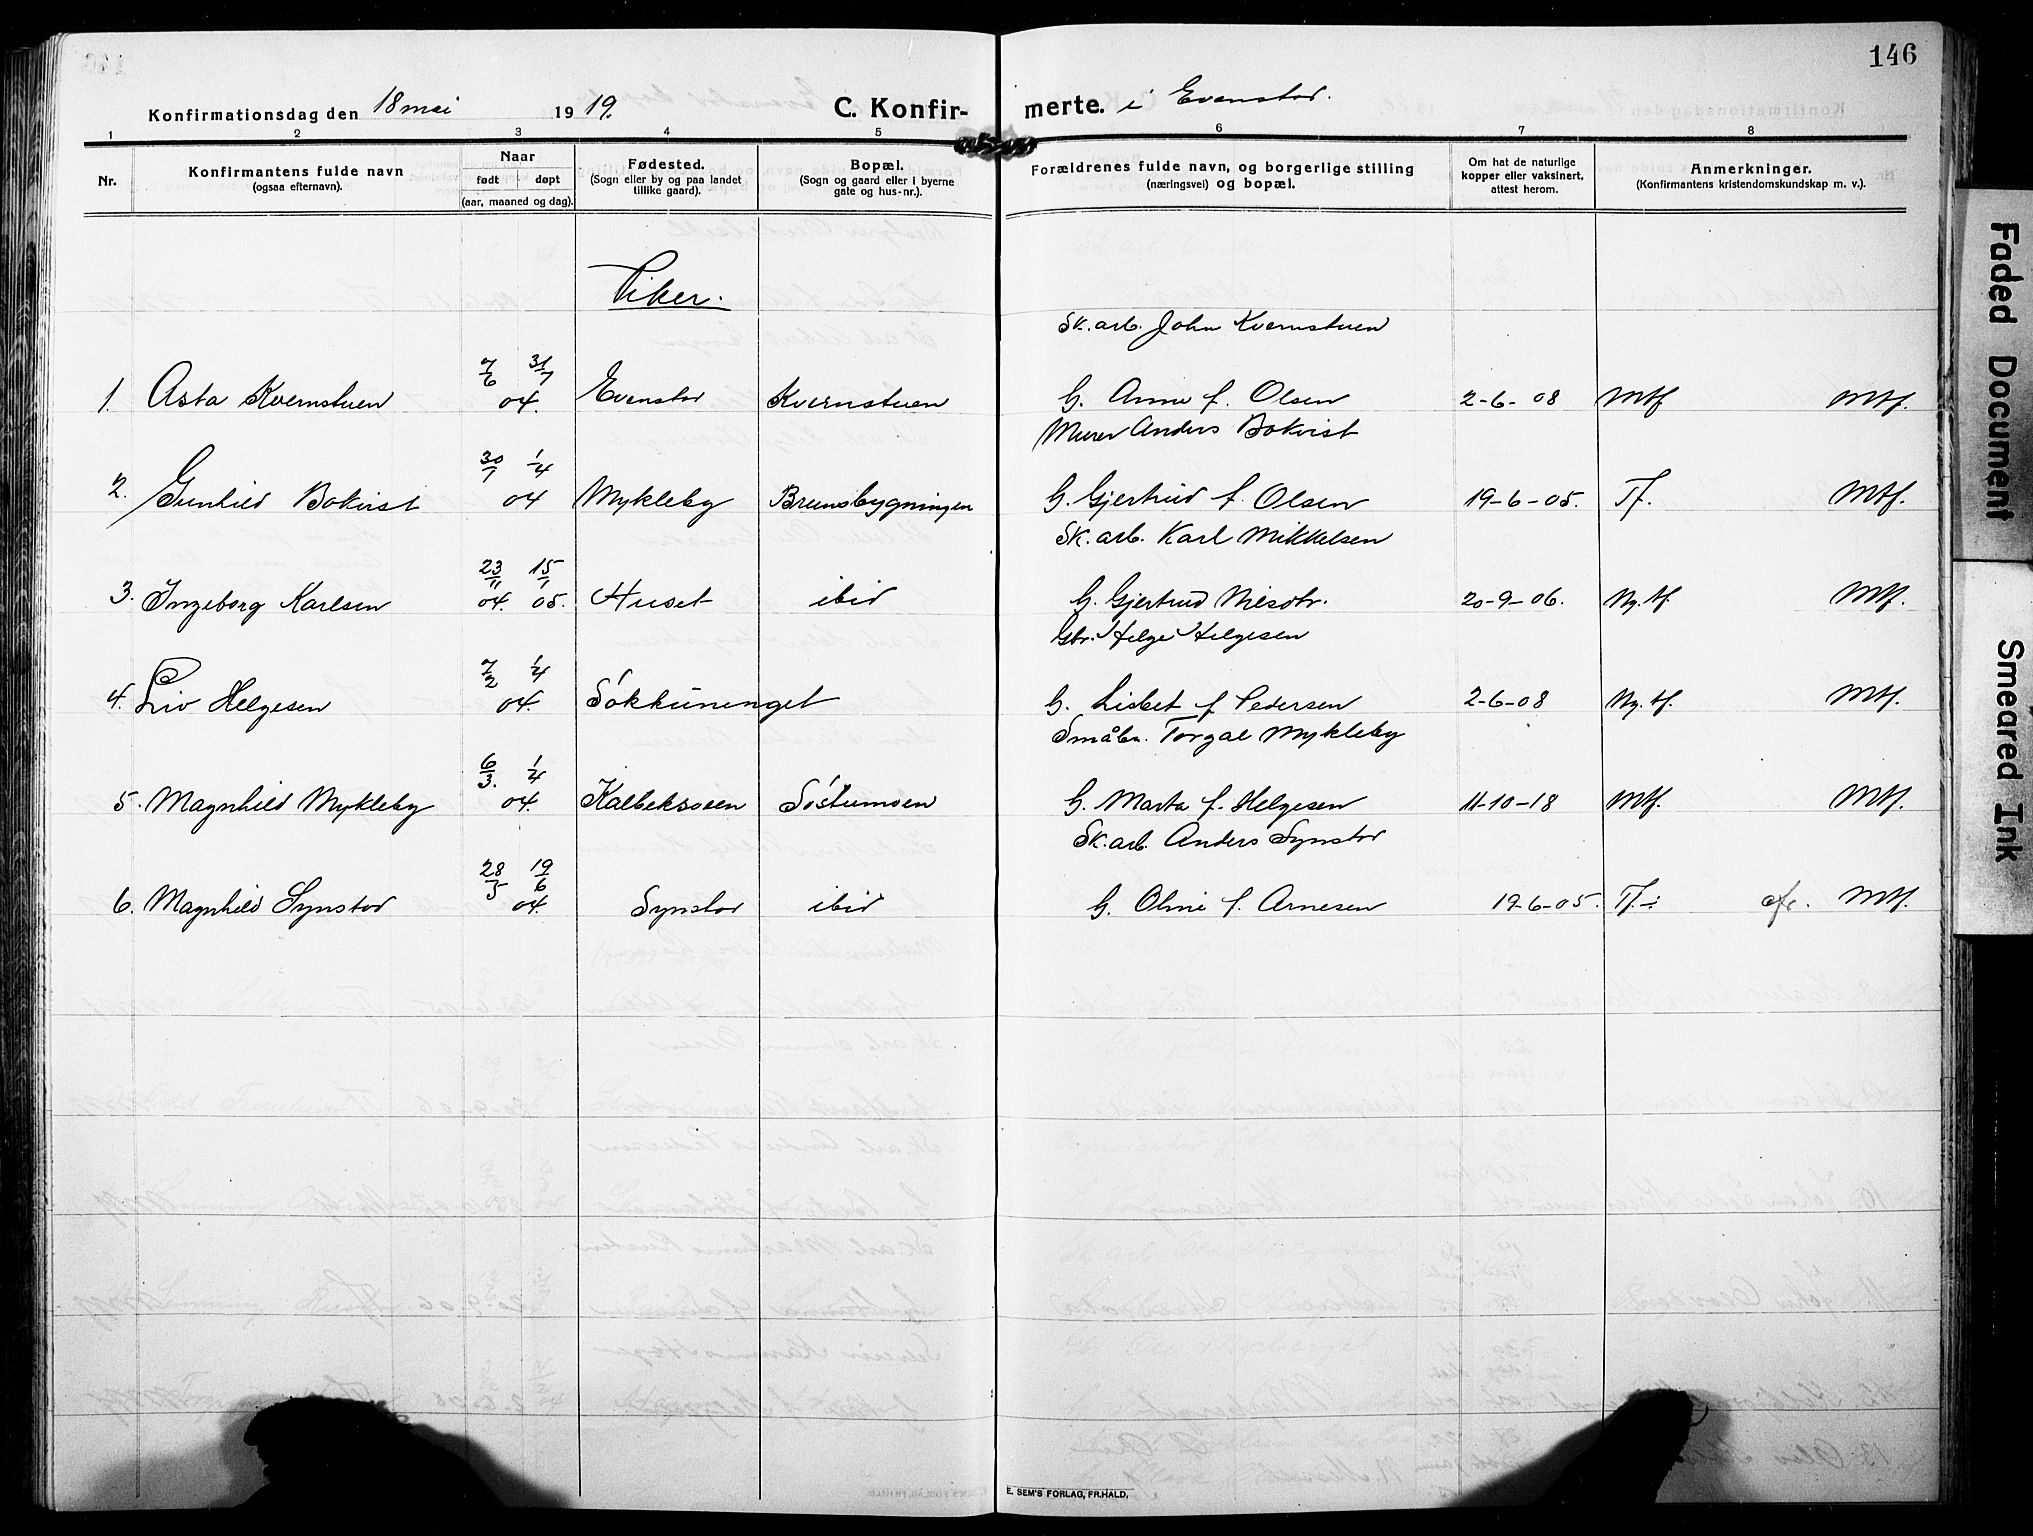 146
Konfirmationsdag den 18 mai 1919. C. Konfirmerte. i Evenstad.
1 2 3 4 5 6 7 8
Nr. Konfirmantens fulde navn (ogsaa efternavn). Naar født døpt (aar, maaned og dag). Fødested. (Sogn eller by og paa landet tillike gaard). Bopæl. (Sogn og gaard eller i byerne gate og hus-nr.). Forældrenes fulde navn, og borgerlige stilling (næringsvei) og bopæl. Om hat de naturlige kopper eller vaksinert, attest herom. Anmerkninger. (Konfirmantens kristendomskundskap m. v.).
Piker.
Sk. arb. John Kvernstuen
1. Asta Kvernstuen 7/6 31/7 04. Evenstad Kvernstuen G. Anne f. Olsen 2-6-08 Mtf Mtf.
Murer Anders Bokvist
2. Gunhild Bokvist 30/1 1/4 04 Mykleby Brunsbygningen G. Gjertrud f. Olsen 19-6-05. Tf. Mtf.
Sk. arb. Karl Mikkelsen
3. Ingeborg Karlsen 23/11 04. 15/1 05. Huset ibid G. Gjertrud Nilsdtr. 20-9-06. Ng. tf. Mtf.
Gbr. Helge Helgesen
4. Liv Helgesen 7/2 1/4 04. Søkkunenget G. Lisbet f Pedersen 2-6-08 Ng. tf. Mtf.
Småbr. Torgal Mykleby
5. Magnhild Mykleby 6/3. 1/4 04. Kalbeksoen Søstumoen G. Marta f. Helgesen 11-10-18 Mtf. Mtf.
Sk. arb. Anders Synstad
6. Magnhild Synstad 28/5 19/6 04. Synstad ibid G. Oline f. Arnesen 19-6-05. Tf. ÷ cfr. Mtf.
E. SEM'S FORLAG, FR.HALD.
Faded Document
Smeared Ink